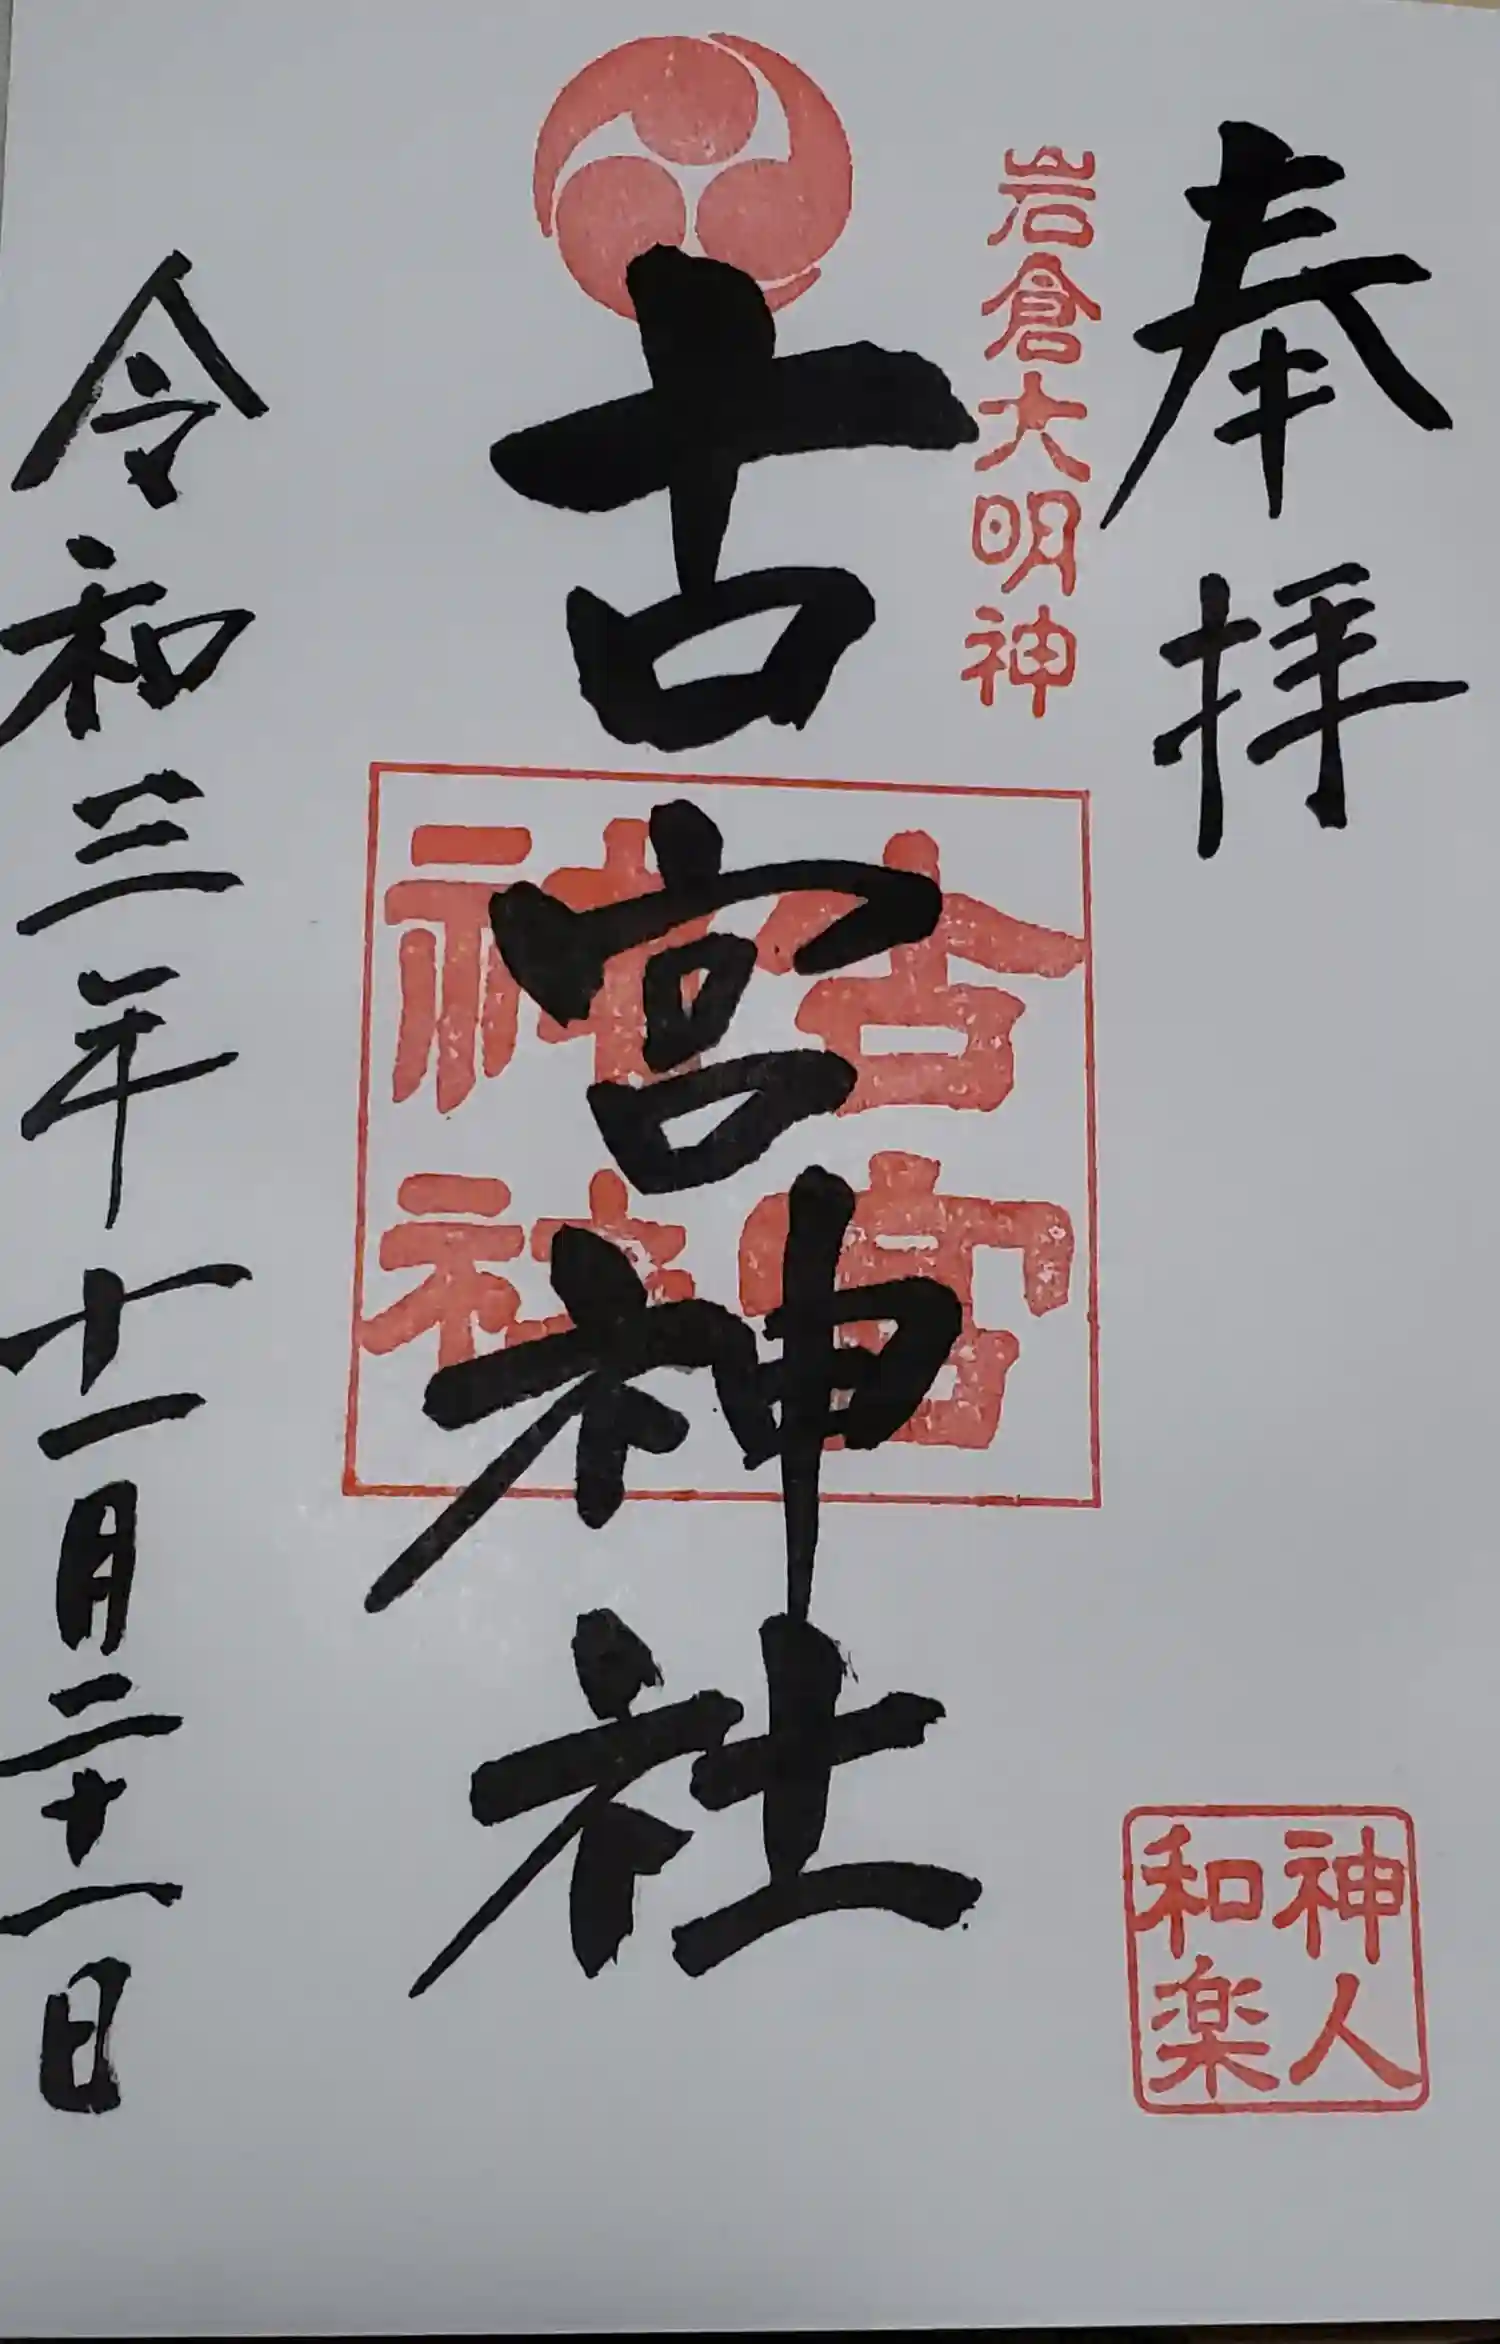 奉拝
岩倉大明神
古宮神社
古宮
神社
神人
和楽
令和三年十一月二十一日